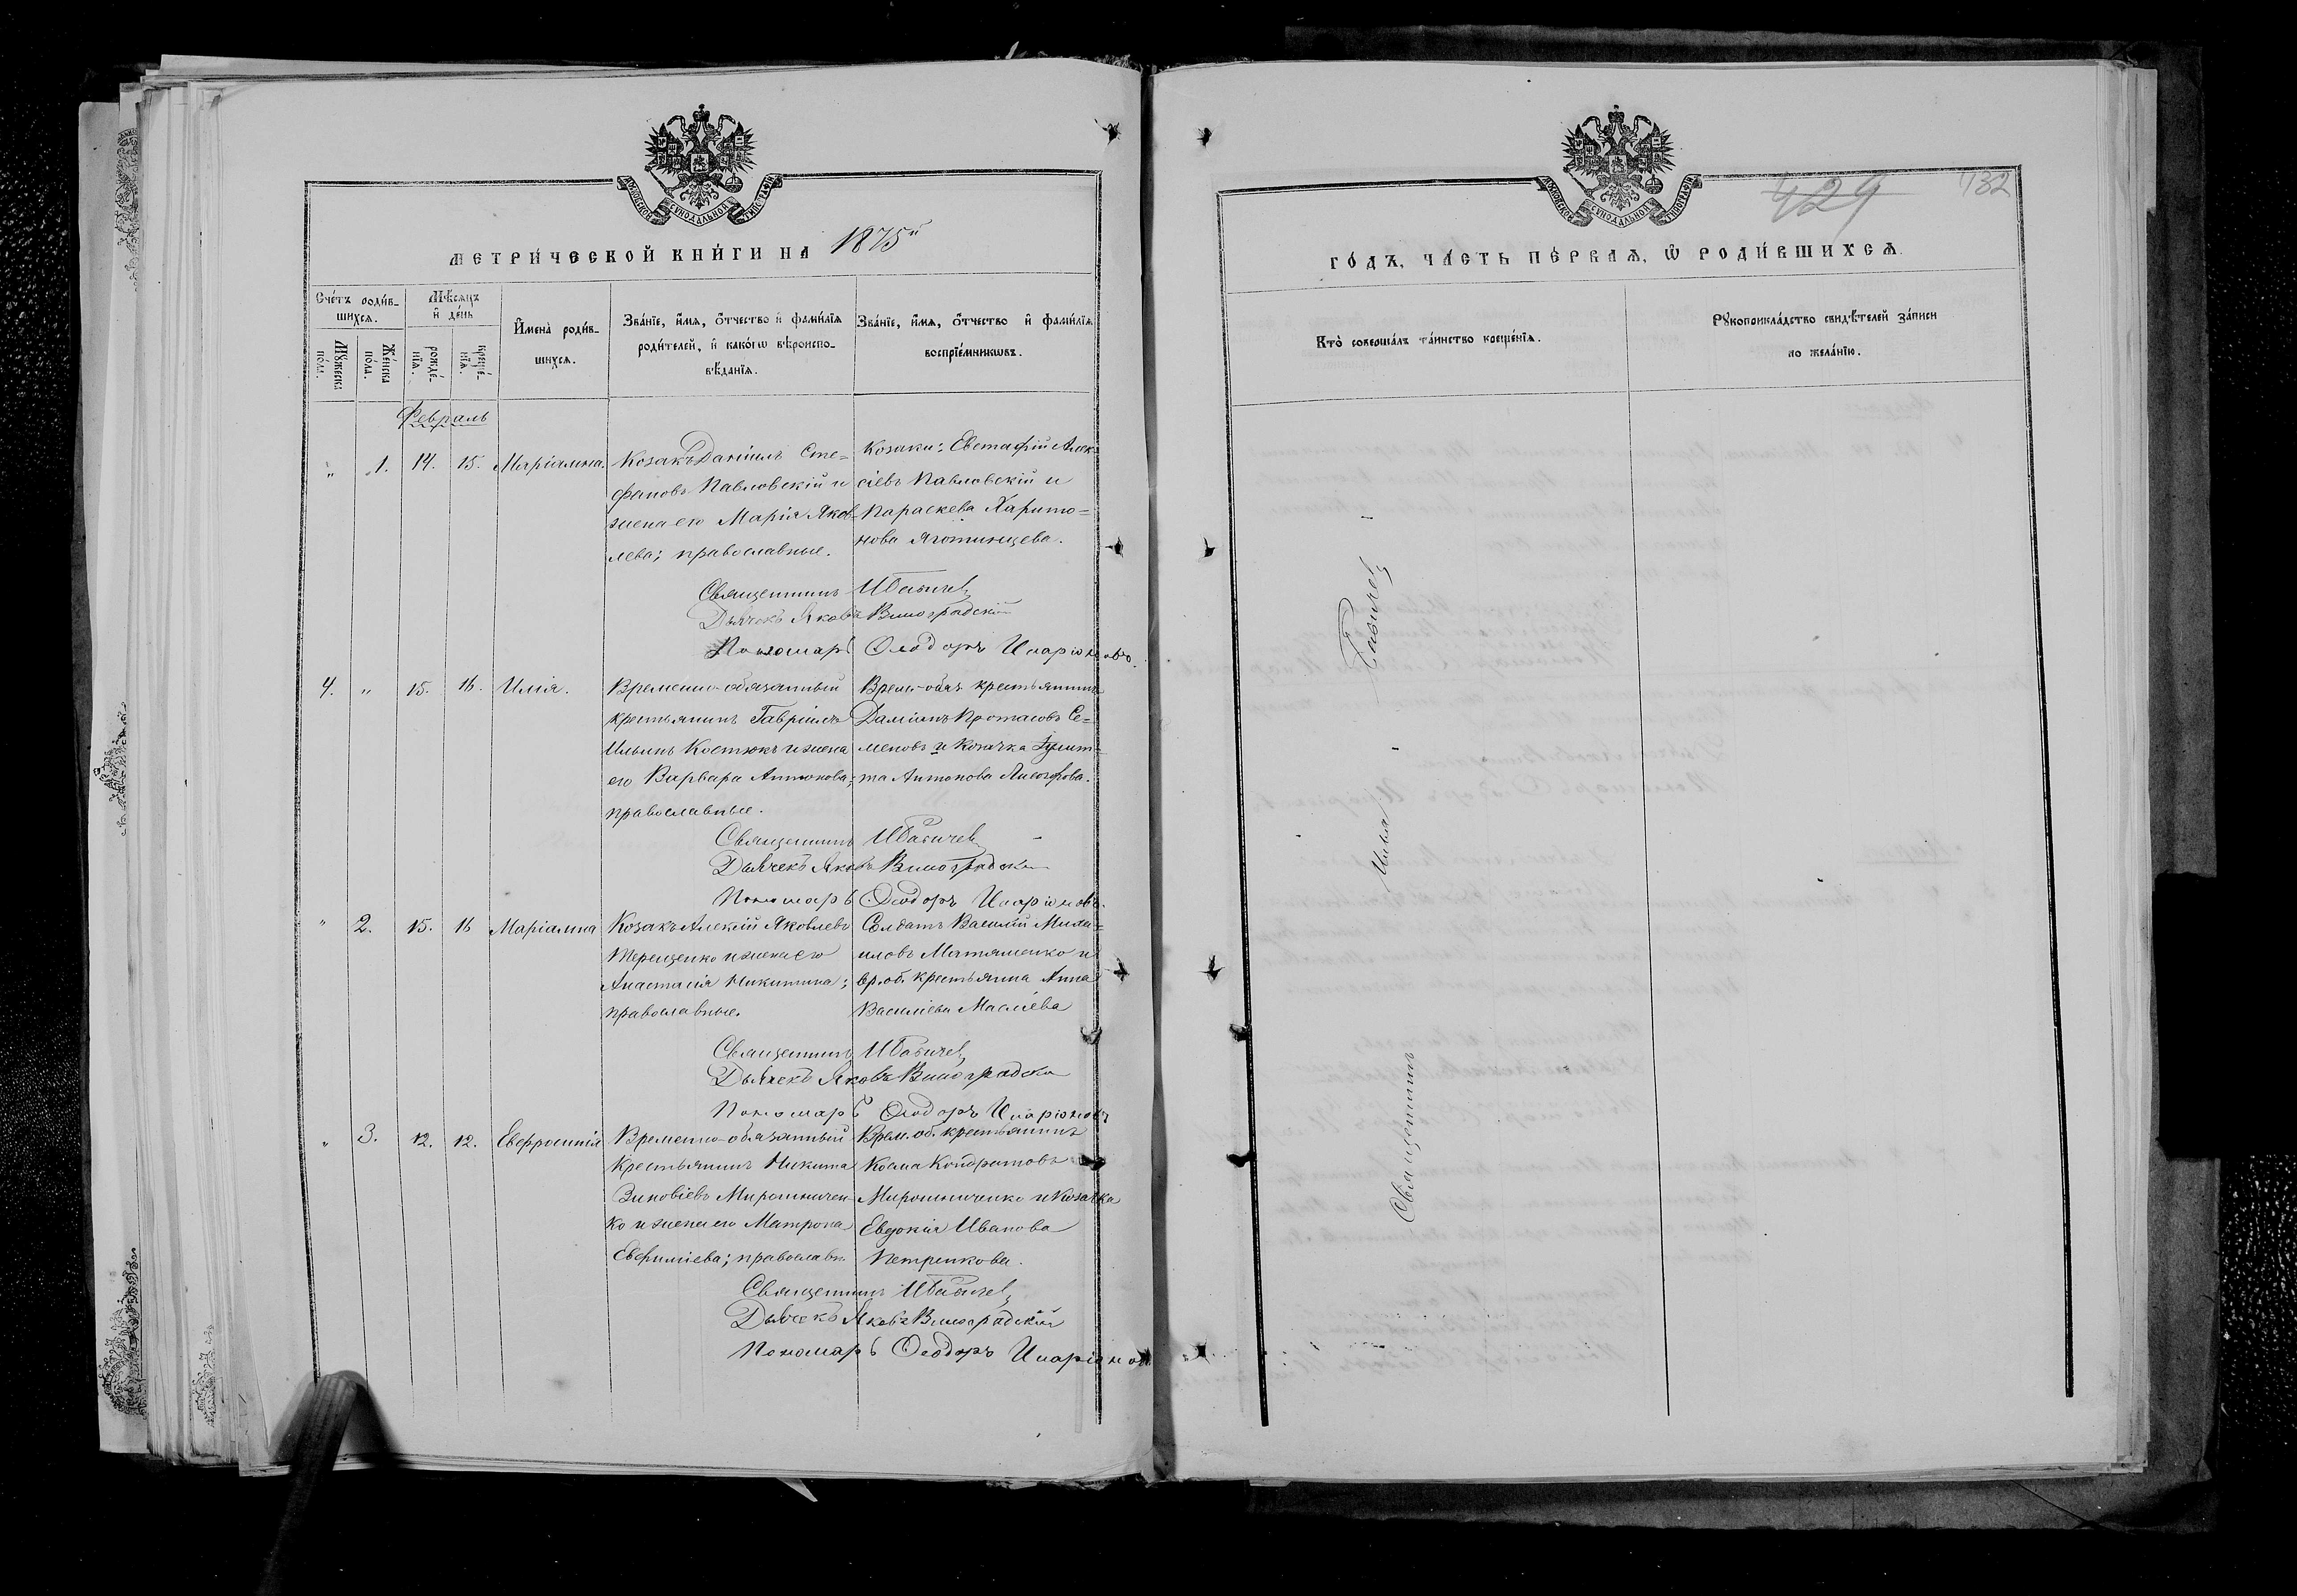 МОСКОВСКОЙ СѴНОДАЛЬНОЙ ТИПОГРАФІИ
МЕТРИ́ЧЕСКОЙ КНИ́ГИ НА 1875й
Сче́тъ роди́в-
шихсѧ.
Мꙋ́жеска
по́ла.
Же́нска
по́ла.
Мѣ́сѧцъ
и҆ де́нь
рожде́-
нїѧ.
креще́-
нїѧ.
И҆мена̀ роди́в-
шихсѧ.
Зва́нїе, и҆́мѧ, ѻ҆́тчество и҆ фами́лїѧ
роди́телей, и҆ како́гѡ вѣроиспо-
вѣ́данїѧ.
Зва́нїе, и҆́мѧ, ѻ҆́тчество и҆ фами́лїѧ
воспрїе́мникѡвъ.
Февраль
" 1. 14. 15. Маріамна.
Козакъ Даніилъ Сте=
фановъ Павловскій и
жена его Марія Яков
лева; православные.
Козаки: Евстафій Алек=
сіевъ Павловскій и
Параскева Харито=
нова Яготинцева.
Священникъ И Бабичев
Дьячекъ Яковъ Виноградскій
Пономарь Ѳеодоръ Иларіоновъ.
4. " 15. 16. Илія.
Временно-обязанный
крестьянинъ Гавріилъ
Ильинъ Костюкъ и жена
его Варвара Антонова;
православные.
Врем-обяз. крестьянинъ
Даміанъ Протасовъ Се=
меновъ и козачка Іулит=
та Антонова
Священникъ И Бабичев
Дьячекъ Яковъ Виноградски
Пономарь Ѳеодоръ Иларіоновъ.
" 2. 15. 16 Маріамна
Козакъ Алексій Яковлевъ
Терещенко и жена его
Анастасія Никитина;
православные.
Солдатъ Василій Миха=
иловъ Матяшенко и
вр.об. крестьянка Анна
Василіева Маслѣева
Священникъ И Бабичев
Дьячекъ Яковъ Виноградски
Пономарь Ѳеодоръ Иларіоновъ
" 3. 12. 12. Евфросинія
Временно-обязанный
Крестьянинъ Никита
Зиновіевъ Мирошничен-
ко и жена его Матрона
Евфиміева; православн.
Врем. об. крестьянинъ
Косма Кондратовъ
Мирошниченко и козачка
Евдокія Иванова
Петренкова.
Священникъ И Бабичев
Дьячекъ Яковъ Виноградскій
Пономарь Ѳеодоръ Иларіонов
МОСКОВСКОЙ СѴНОДАЛЬНОЙ ТИПОГРАФІИ
429 432
ГО́ДЪ, ЧА́СТЬ ПЕ́РВАѦ, Ѡ҆ РОДИ́ВШИХСѦ.
Кто̀ соверша́лъ та́инство креще́нїѧ.
Рꙋкоприкла́дство свидѣ́телей за́писи
по жела́нїю.
Священникъ Илья Бабичев